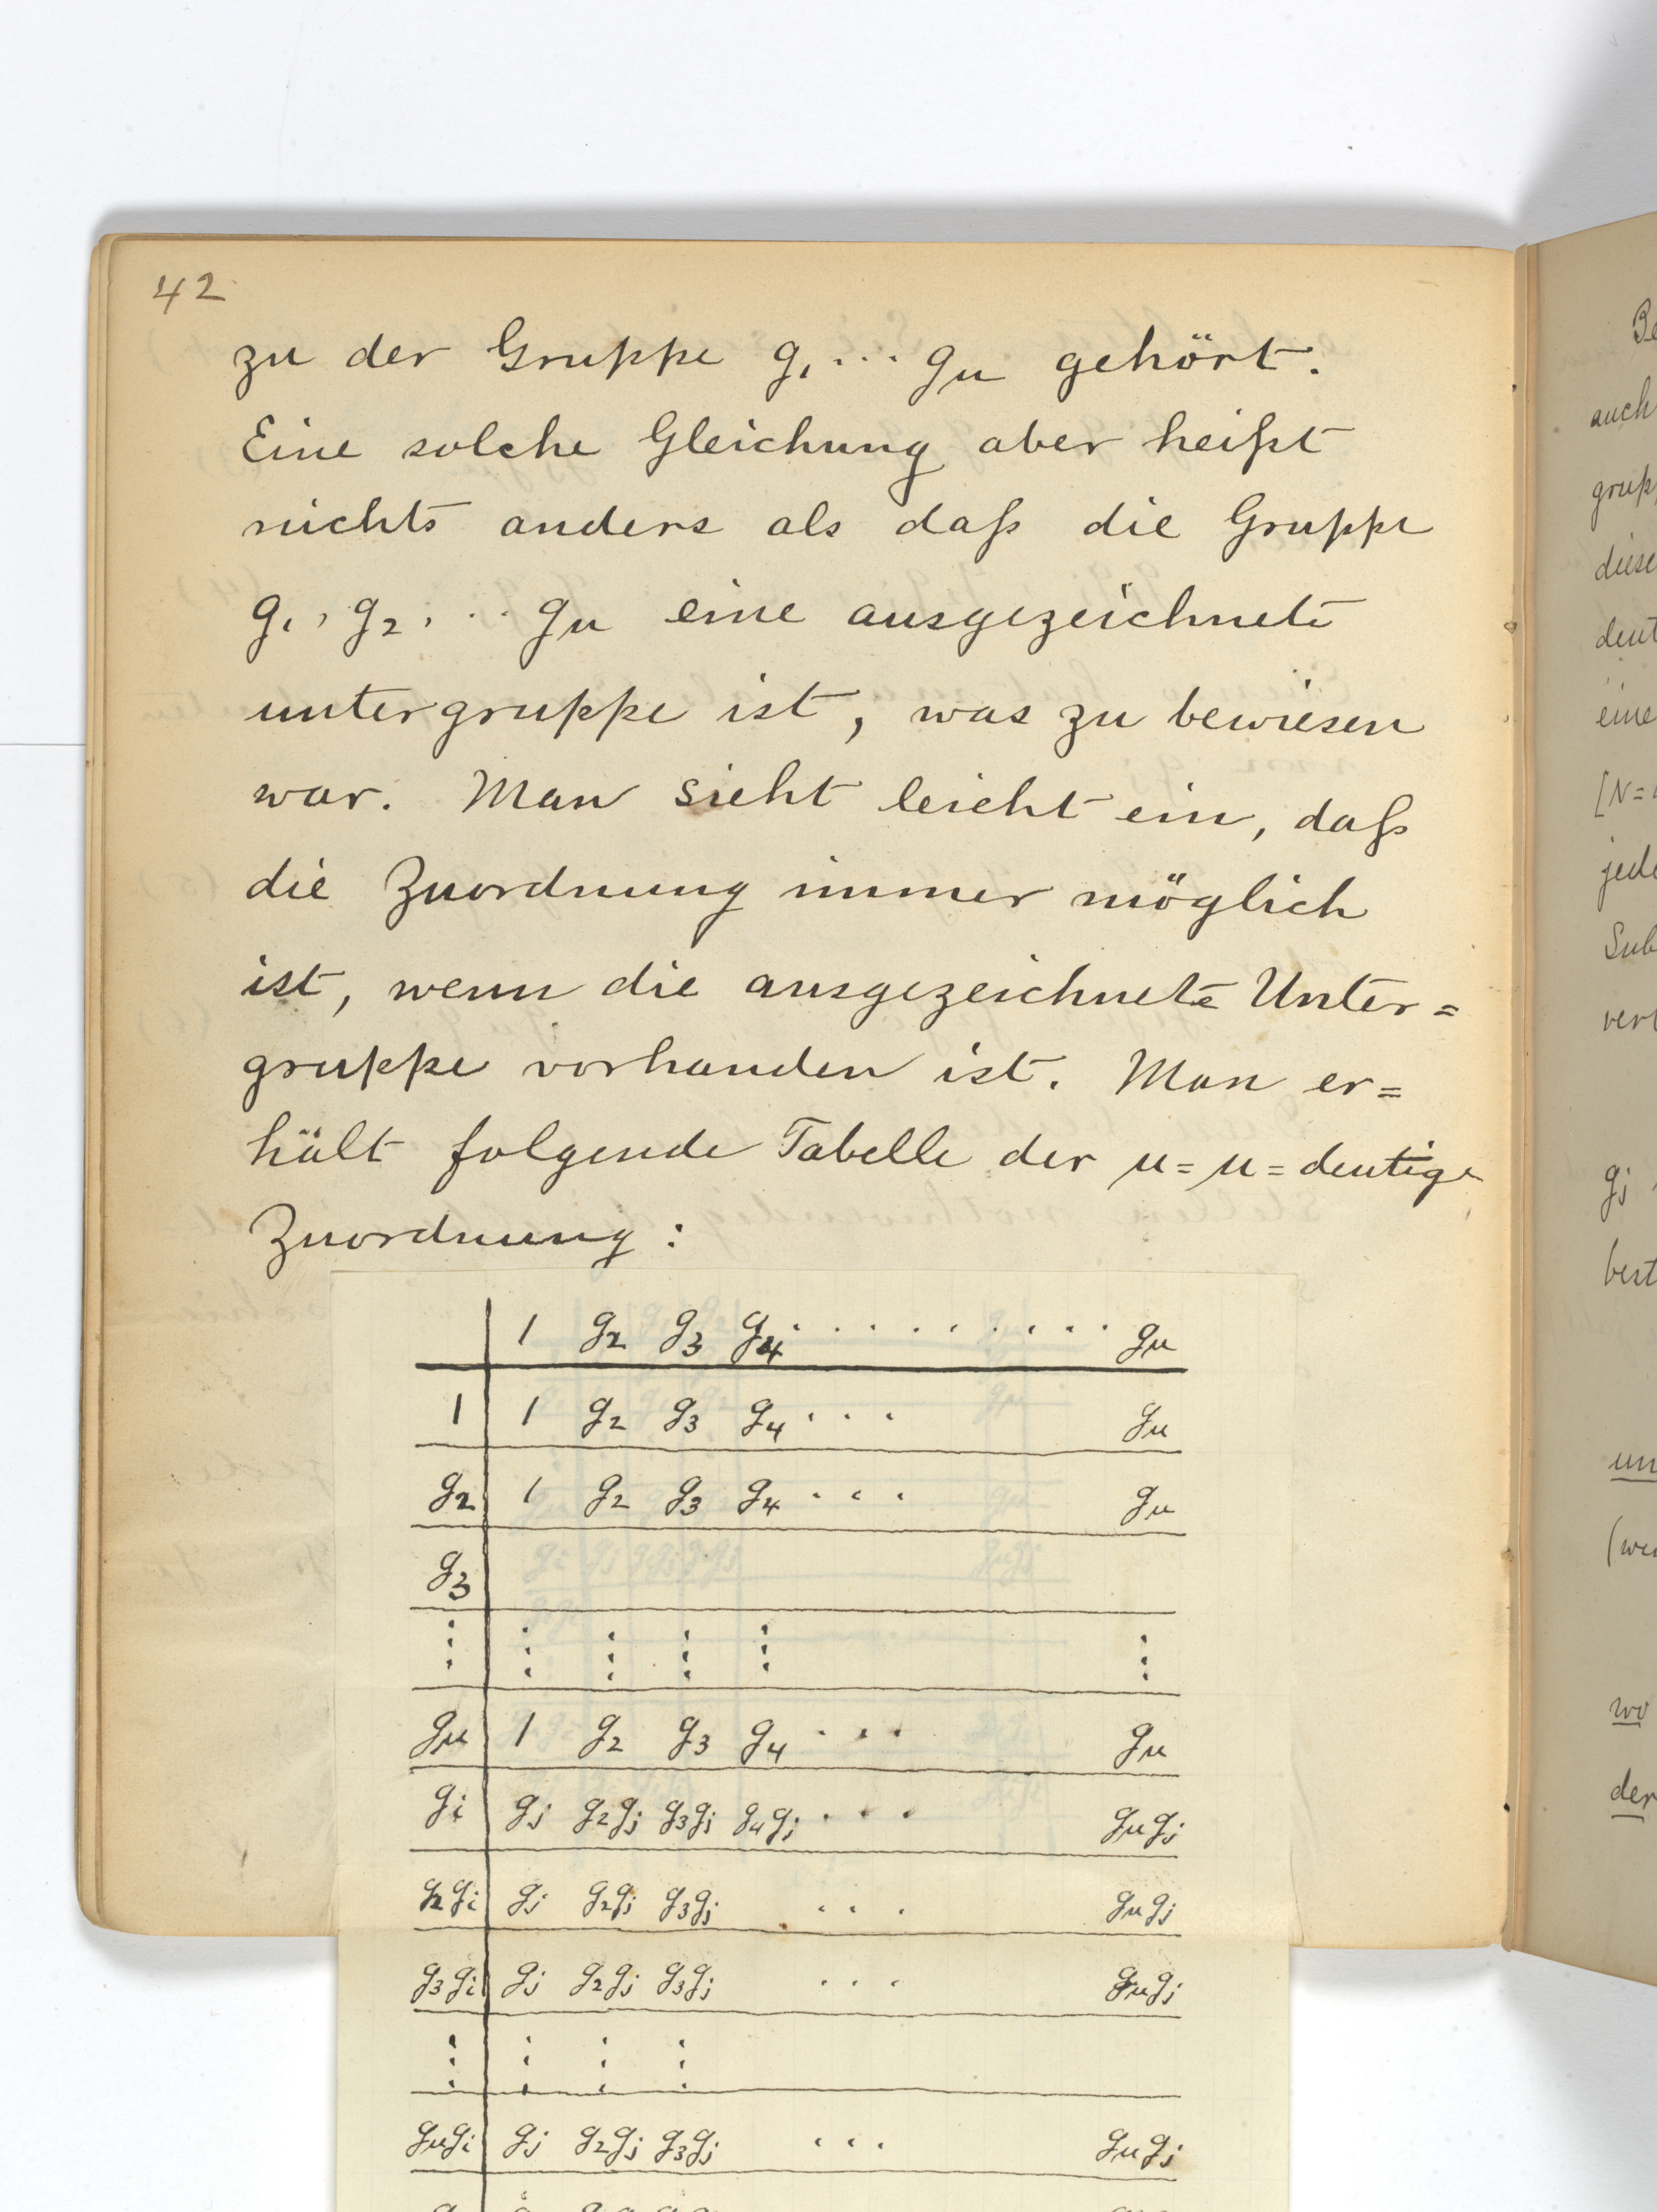 42
zu der Gruppe g₁ ... gμ gehört.
Eine solche Gleichung aber heißt
nichts anders als daß die Gruppe
g₁, g₂, ... gμ eine ausgezeichnete
untergruppe ist, was zu bewiesen
war. Man sieht leicht ein, daß
die Zuordnung immer möglich
ist, wenn die ausgezeichnete Unter=
gruppe vorhanden ist. Man er=
hält folgende Tabelle der μ=μ=deutige
Zuordnung:
1 g₂ g₃ g₄ . . . . . . . . . gμ
1 1 g₂ g₃ g₄ . . . gμ
g₂ 1 g₂ g₃ g₄ . . . gμ
g₃
⋮ ⋮ ⋮ ⋮ ⋮ ⋮
gμ 1 g₂ g₃ g₄ . . . gμ
gᵢ gⱼ g₂gⱼ g₃gⱼ g₄gⱼ . . . gμgⱼ
g₂gᵢ gⱼ g₂gⱼ g₃gⱼ . . . gμgⱼ
g₃gᵢ gⱼ g₂gⱼ g₃gⱼ . . . gμgⱼ
⋮ ⋮ ⋮ ⋮
gμgᵢ gⱼ g₂gⱼ g₃gⱼ . . . gμgⱼ
auch
diese
eine
[N=
gⱼ
wo
der